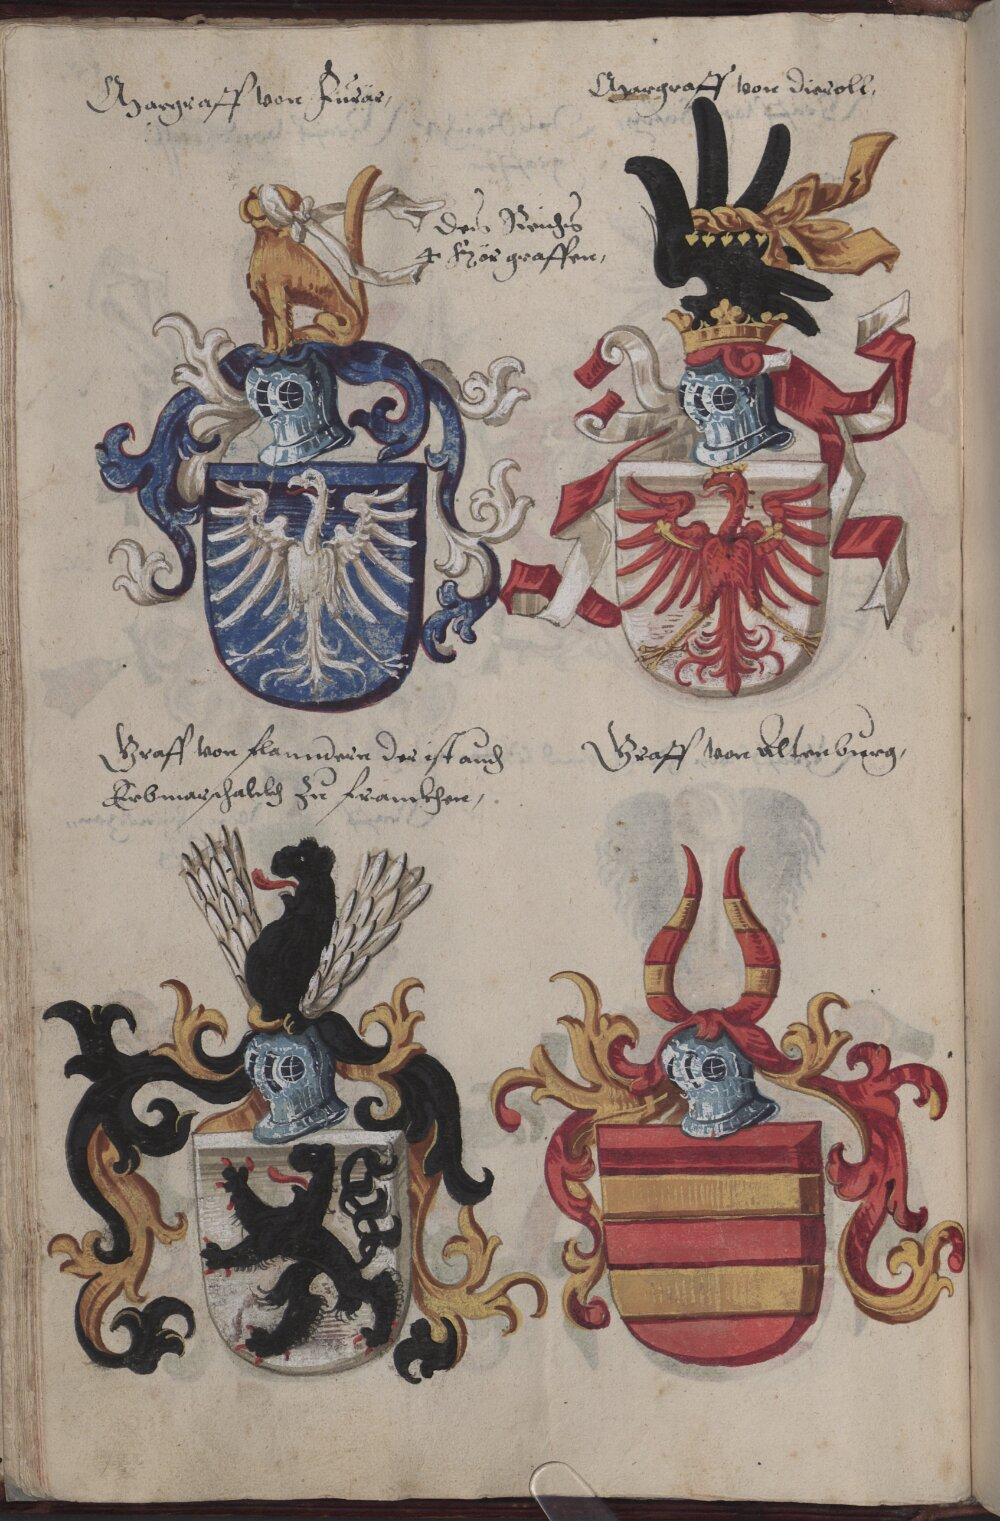 Margraff von
Margraff von Dieroll,
Des Reichs
4 graffen,
Graff von flanndern der ist auch
Erbmarschalckh zu franckhen,
Graff von Altenburg,